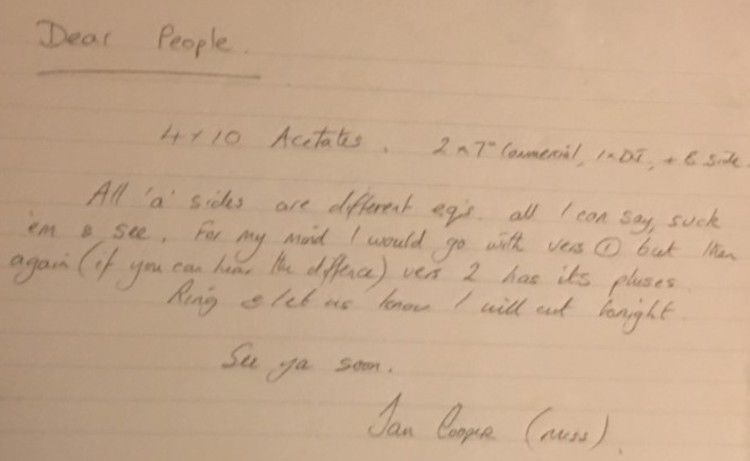 Dear People.
4 x 10 Acetates. 2 x 7" Commercial, 1 x DI, + B Side.
All 'a' sides are different eq's. all I can say, suck
'em & see. For my mind I would go with vers ① but then
again (if you can hear the diffence) vers 2 has its pluses.
Ring & let us know I will cut tonight.
See ya soon.
Ian Cooper (miss).